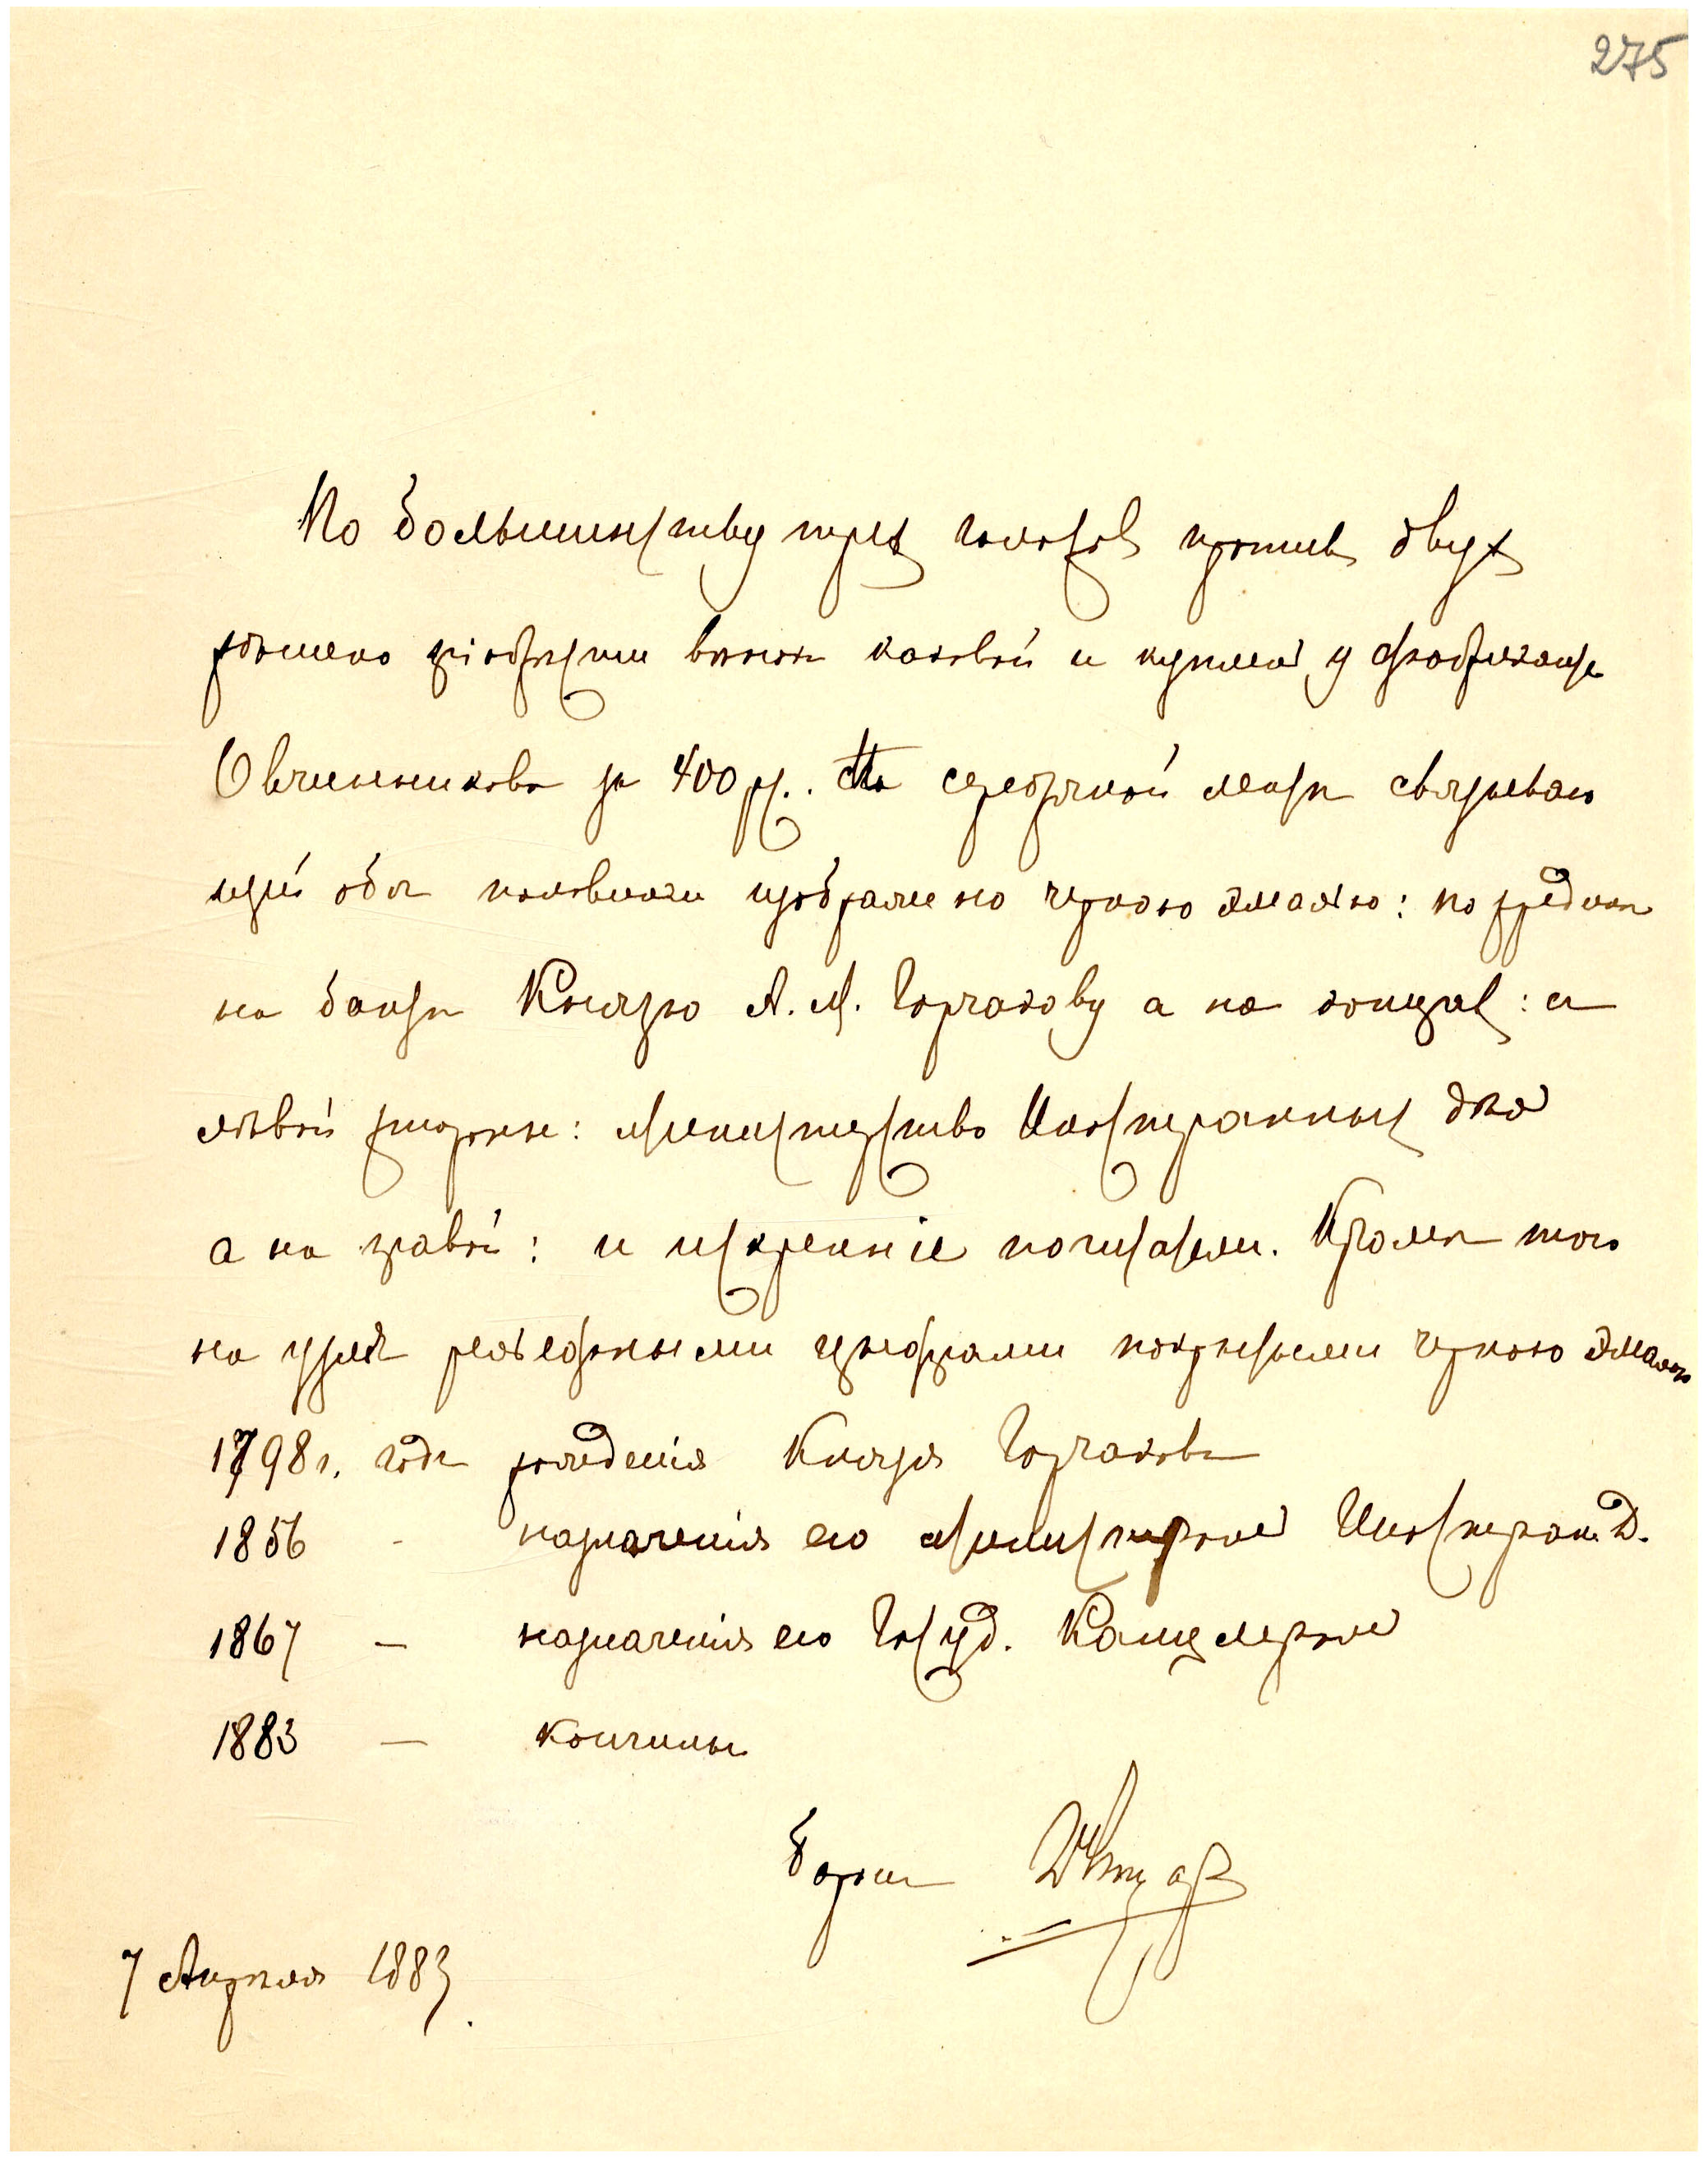 275
По большинству трех голосов против двух
рѣшено пріобрести вѣнок каковой и куплен у фабриканта
Овчинникова за 400 р. На серебряной лентѣ связываю
щей обѣ половинки изображено черною эмалью: по средине
на бантѣ Князю А. М. Горчакову а на концах: с
лѣвой стороны: Министерство Иностранных дѣл
а на правой: и искренніе почитатели. Кромѣ того
на узлѣ рельефными цифрами покрытыми черною эмалью
1798 г. год рожденія Князя Горчакова
1856 - назначенія его Министром Иностран. Д.
1867 — назначенія его Госуд. Канцлером
1883 — кончины
Барон
7 Апрѣля 1883.